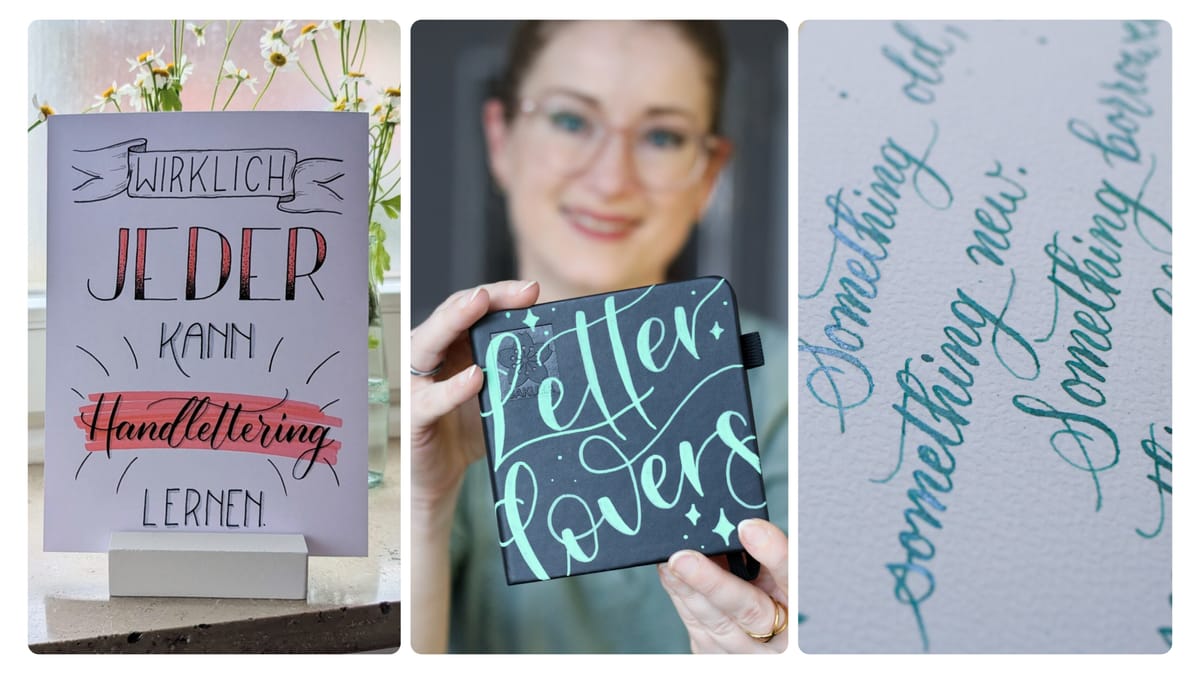 WIRKLICH
JEDER
KANN
Handlettering
LERNEN.
Letter
lovers
Something old,
something new.
Something